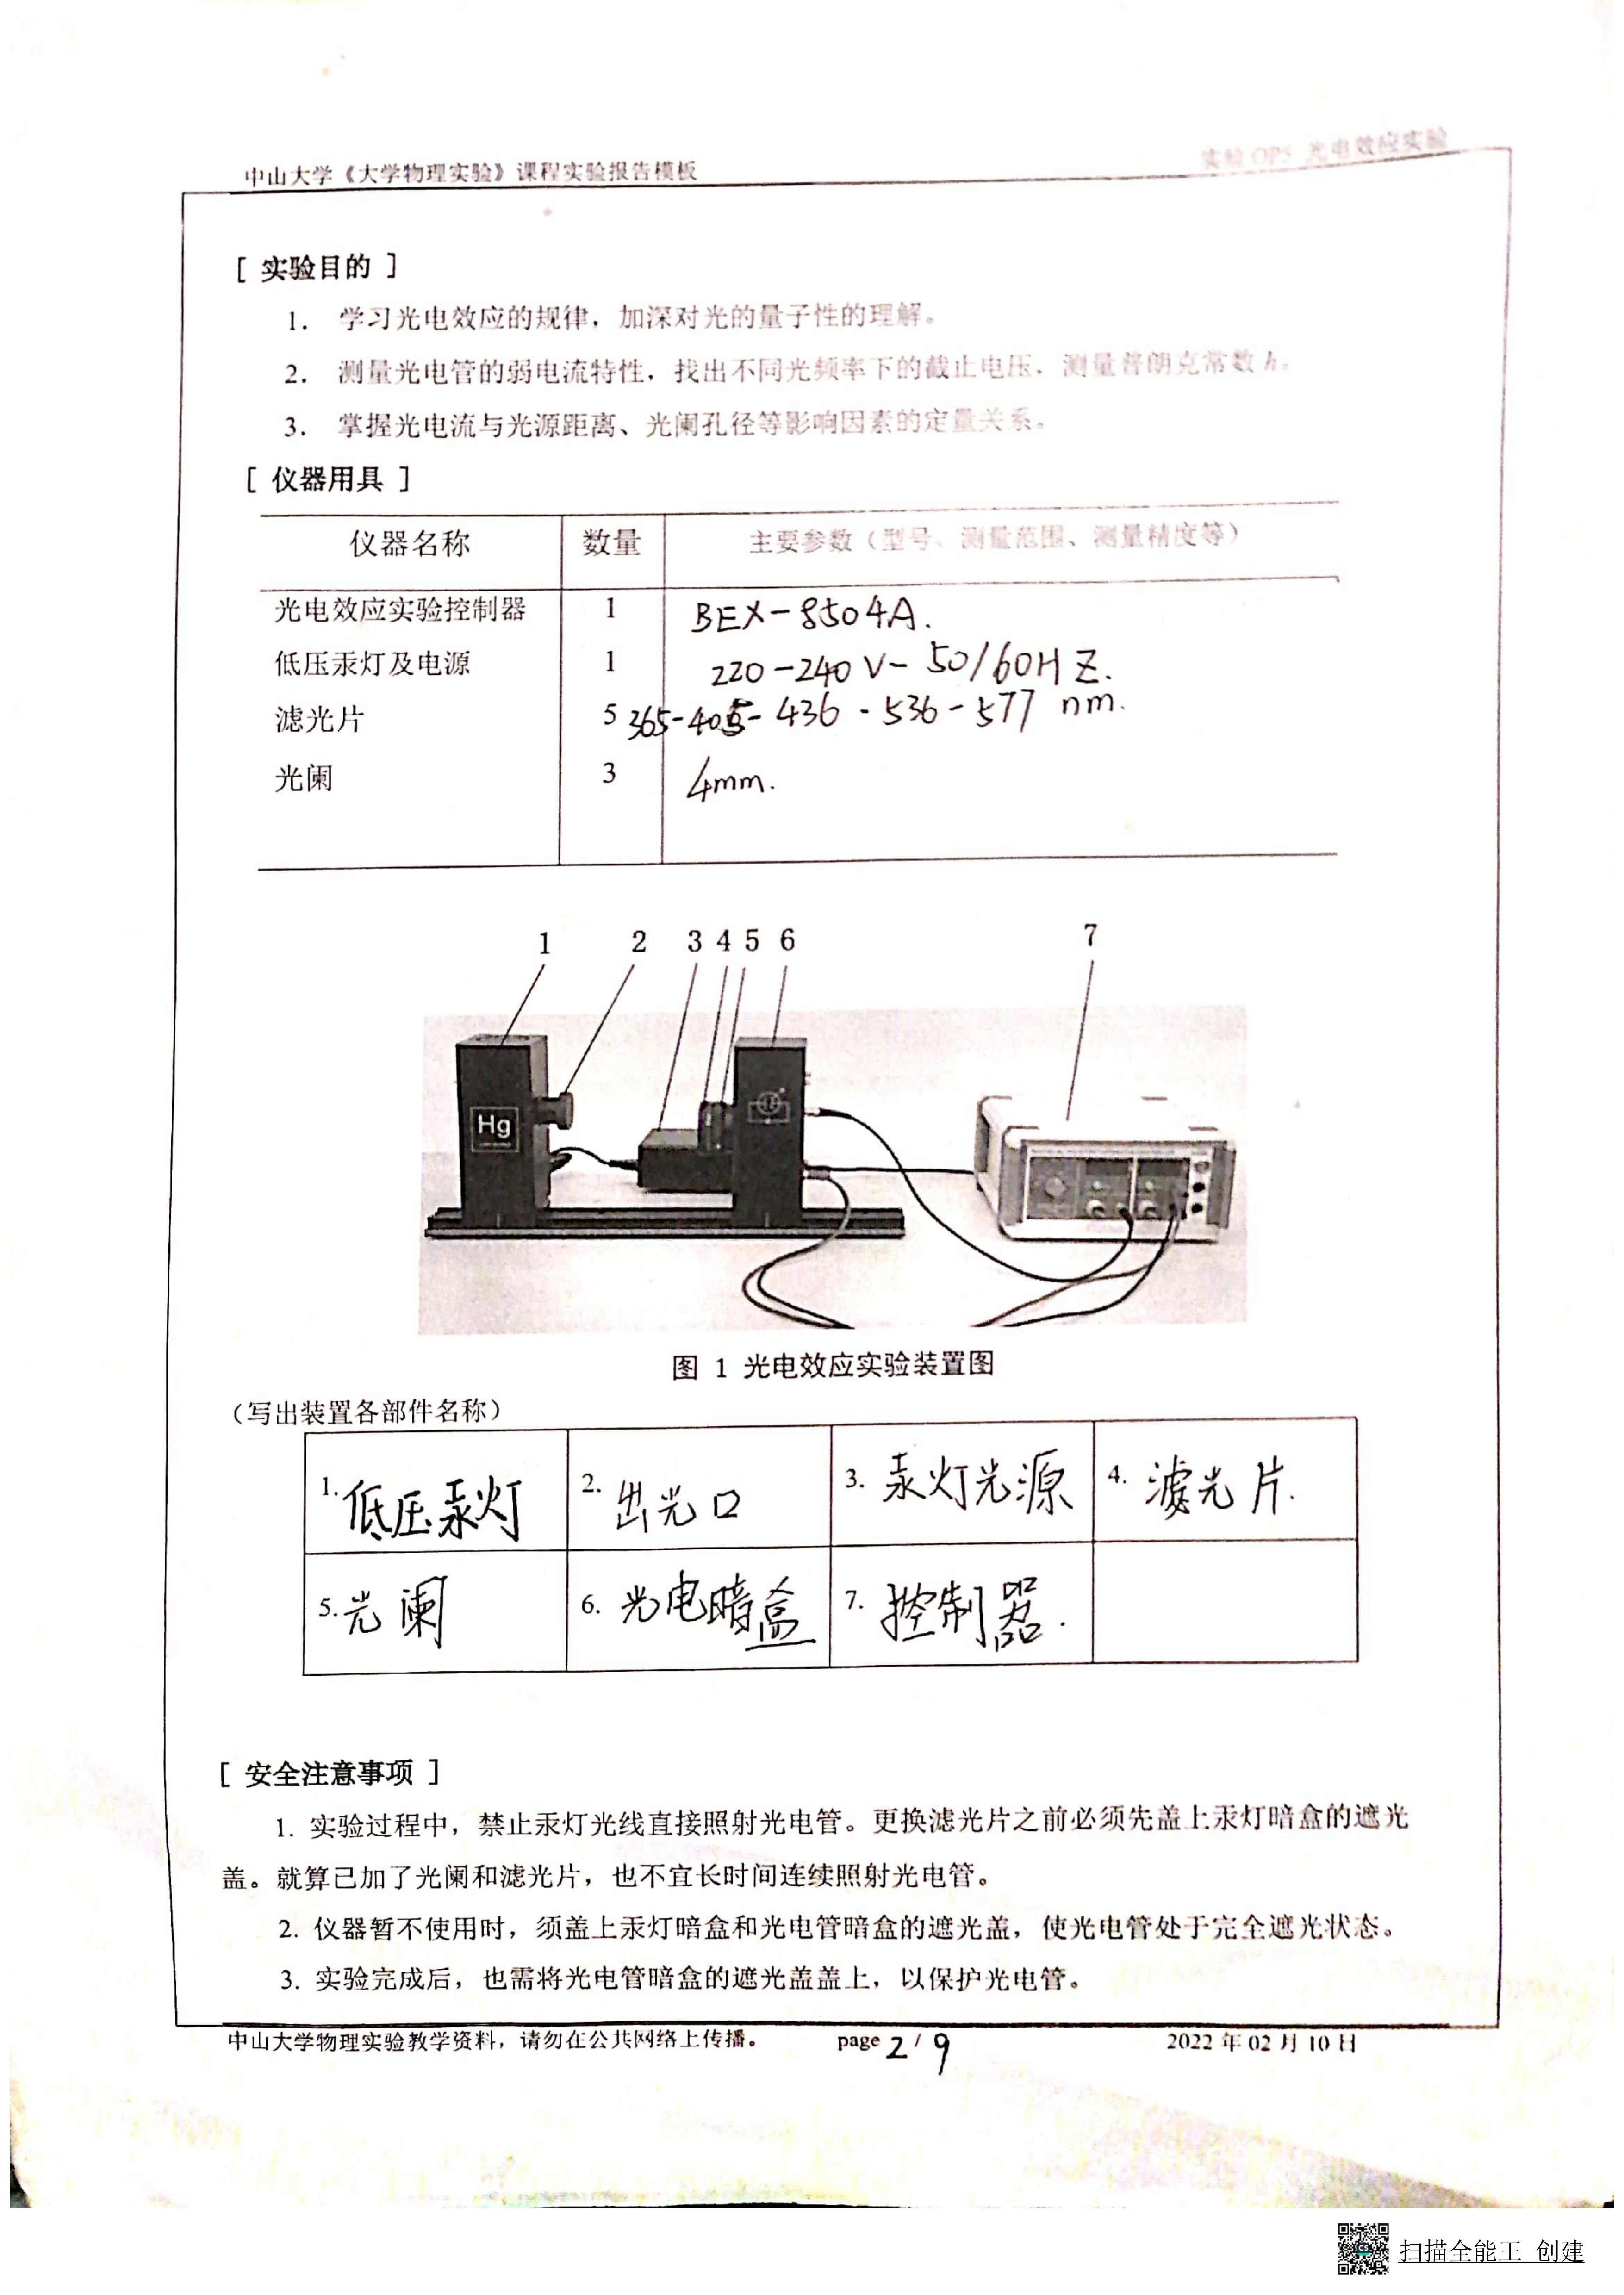 中山大学《大学物理实验》课程实验报告模板
实验 OP5 光电效应实验
[ 实验目的 ]
1. 学习光电效应的规律，加深对光的量子性的理解。
2. 测量光电管的弱电流特性，找出不同光频率下的截止电压，测量普朗克常数 h。
3. 掌握光电流与光源距离、光阑孔径等影响因素的定量关系。
[ 仪器用具 ]
仪器名称 数量 主要参数（型号、测量范围、测量精度等）
光电效应实验控制器 1 BEX-8504A.
低压汞灯及电源 1 220-240V- 50/60HZ.
滤光片 5 365-405-436-536-577 nm.
光阑 3 4mm.
1 2 3 4 5 6 7
Hg
图 1 光电效应实验装置图
（写出装置各部件名称）
1. 低压汞灯 2. 出光口 3. 汞灯光源 4. 滤光片.
5. 光阑 6. 光电暗盒 7. 控制器.
[ 安全注意事项 ]
1. 实验过程中，禁止汞灯光线直接照射光电管。更换滤光片之前必须先盖上汞灯暗盒的遮光
盖。就算已加了光阑和滤光片，也不宜长时间连续照射光电管。
2. 仪器暂不使用时，须盖上汞灯暗盒和光电管暗盒的遮光盖，使光电管处于完全遮光状态。
3. 实验完成后，也需将光电管暗盒的遮光盖盖上，以保护光电管。
中山大学物理实验教学资料，请勿在公共网络上传播。 page 2 / 9 2022 年 02 月 10 日
扫描全能王 创建